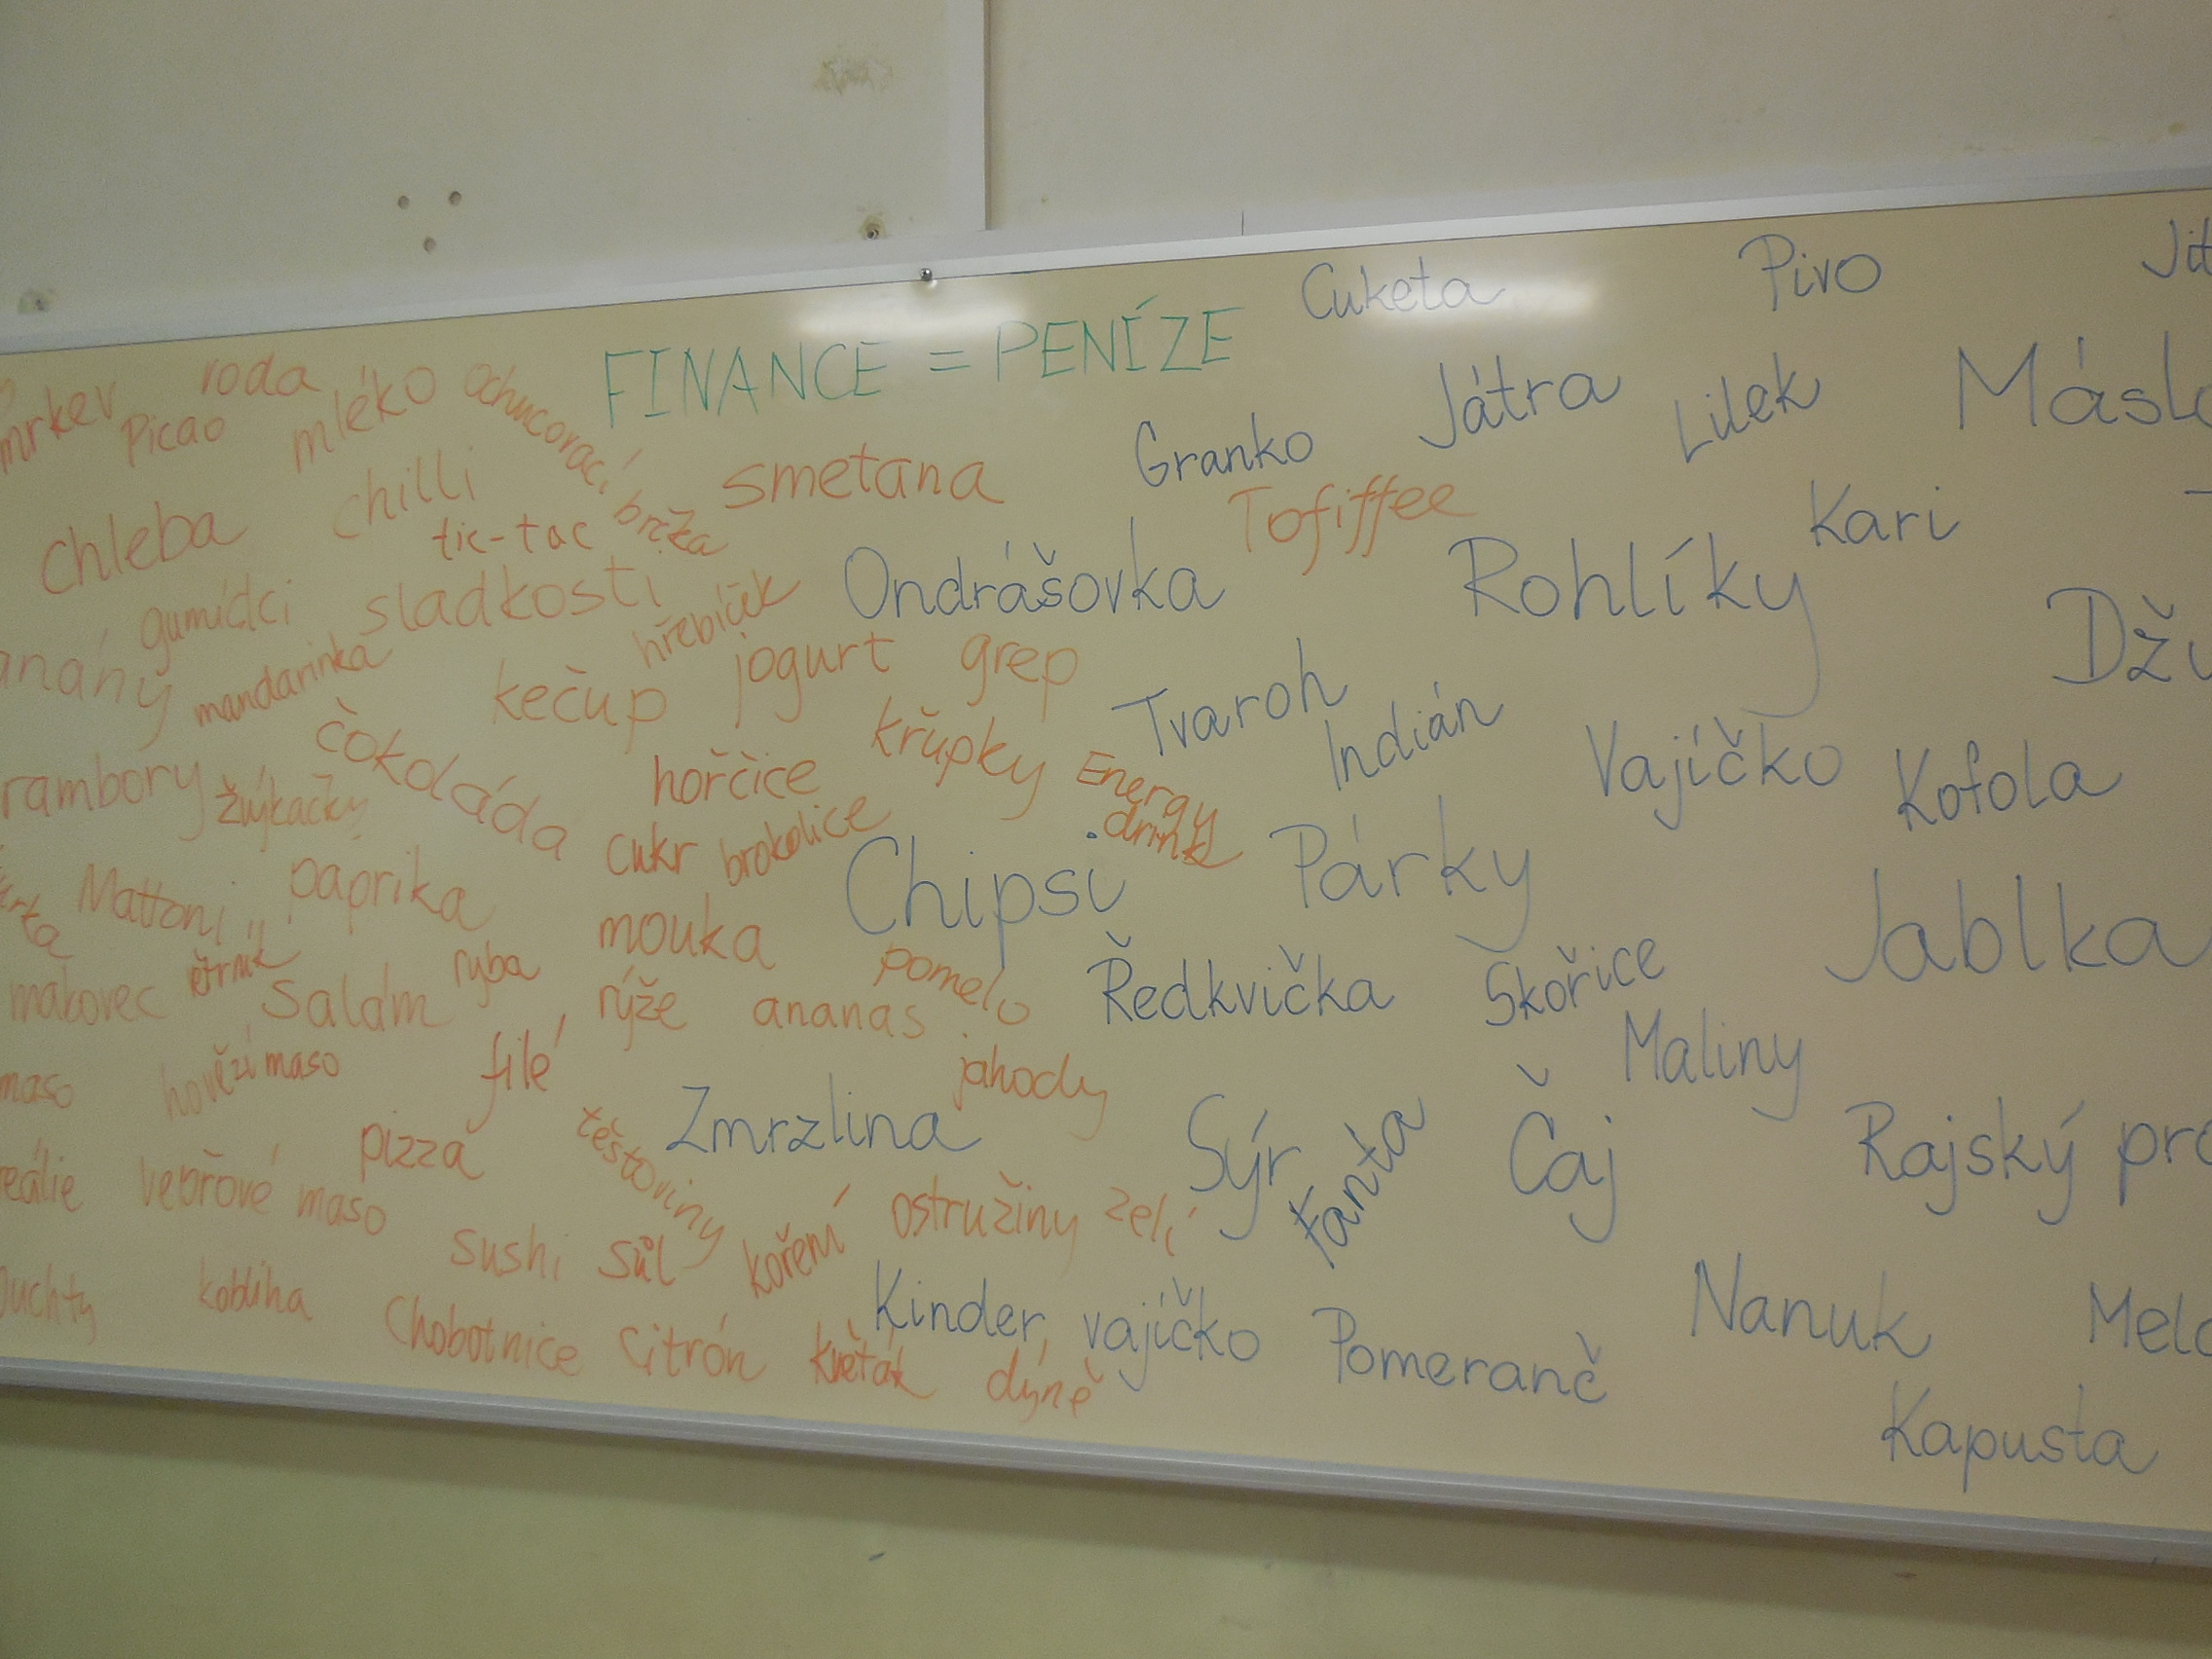 FINANCE = PENÍZE
Cuketa
Pivo
mrkev
Picao
mléko
ochucovací
Granko
Játra
Lilek
chleba
chilli
tic-tac
smetana
Tofiffee
Kari
gumídci
sladkosti
hřebíček
Ondrášovka
Rohlíky
mandarinka
kečup
jogurt
grep
Tvaroh
Indián
čokoláda
hořčice
křupky
Energy
drink
Vajíčko
Kofola
žvýkačky
cukr
brokolice
Chipsi
Párky
Jablka
Mattoni
paprika
mouka
pomelo
Ředkvička
Skořice
makovec
salám
ryba
rýže
ananas
Maliny
maso
hovězí maso
filé
jahody
Zmrzlina
Sýr
Fanta
Čaj
Rajský
pizza
těstoviny
vepřové maso
sushi
sůl
koření
ostružiny
zelí
kobliha
Chobotnice
citrón
květák
dýně
Kinder vajíčko
Pomeranč
Nanuk
Kapusta